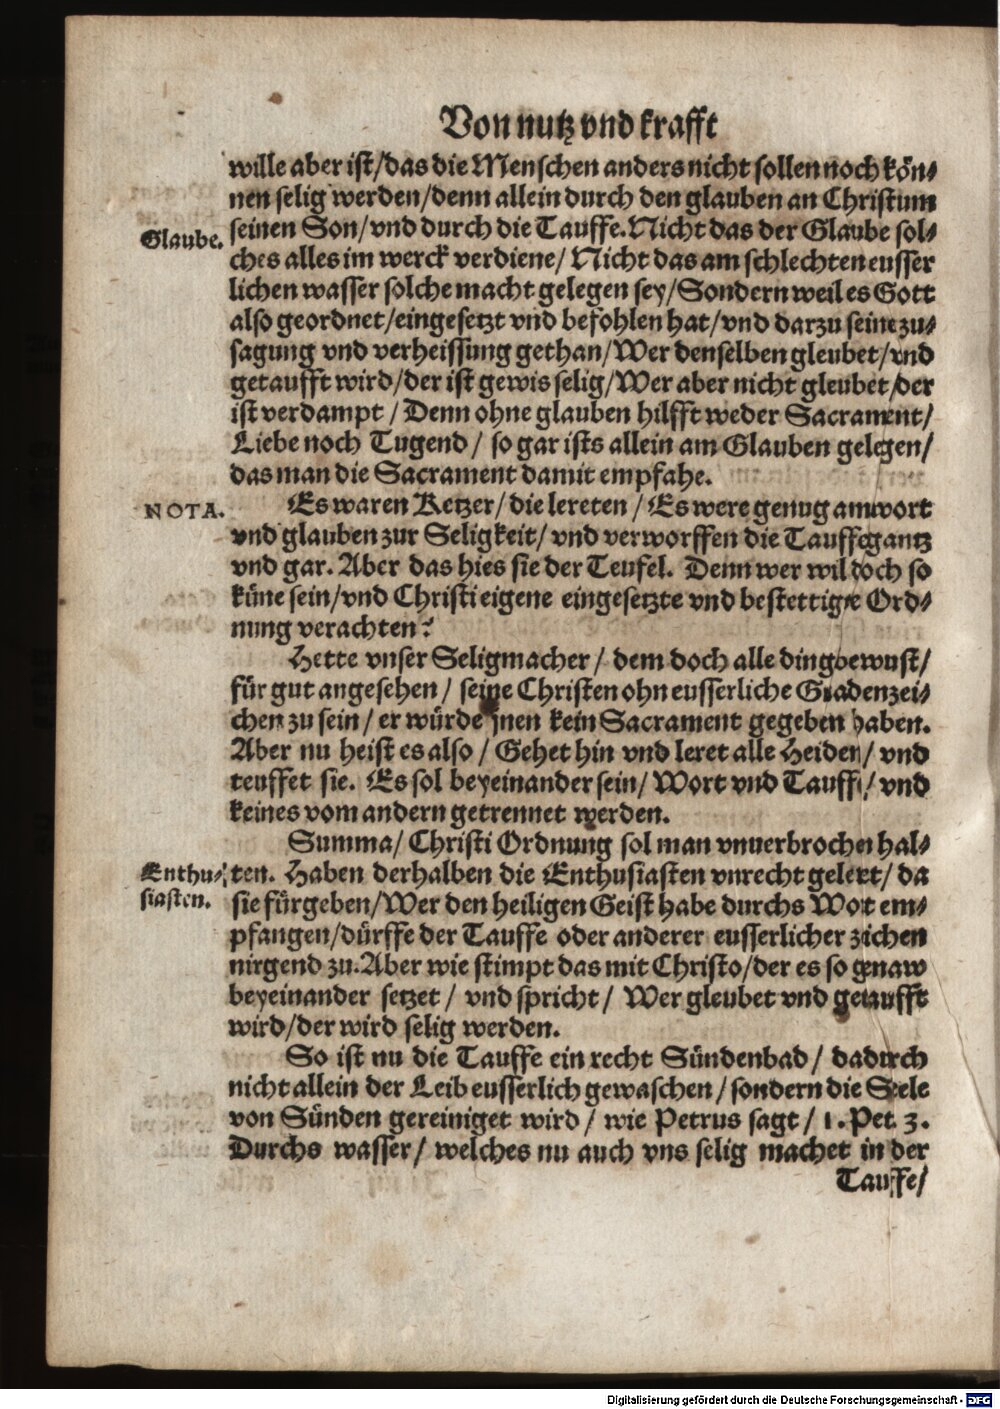 Von nutz vnd krafft
wille aber ist/das die Menschen anders nicht sollen noch kön-
nen selig werden/denn allein durch den glauben an Christum
Glaube. seinen Son/vnd durch die Tauffe. Nicht das der Glaube sol-
ches alles im werck verdiene/Nicht das am schlechten eusser
lichen wasser solche macht gelegen sey/Sondern weil es Gott
also geordnet/eingesetzt vnd befohlen hat/vnd darzu seine zu-
sagung vnd verheissung gethan/Wer denselben gleubet/vnd
getaufft wird/der ist gewis selig/Wer aber nicht gleubet/der
ist verdampt/Denn ohne glauben hilfft weder Sacrament/
Liebe noch Tugend/so gar ists allein am Glauben gelegen/
das man die Sacrament damit empfahe.
NOTA. Es waren Ketzer/die lereten/Es were genug am wort
vnd glauben zur Seligkeit/vnd verworffen die Tauffe gantz
vnd gar. Aber das hies sie der Teufel. Denn wer wil doch so
küne sein/vnd Christi eigene eingesetzte vnd bestettigte Ord-
nung verachten?
Hette vnser Seligmacher/dem doch alle ding bewust/
für gut angesehen/seine Christen ohn eusserliche Gnadenzei-
chen zu sein/er würde jnen kein Sacrament gegeben haben.
Aber nu heist es also/Gehet hin vnd leret alle Heiden/vnd
teuffet sie. Es sol beyeinander sein/Wort vnd Tauffe/vnd
keines vom andern getrennet werden.
Summa/Christi Ordnung sol man vnuerbrochen hal-
Enthu- ten. Haben derhalben die Enthusiasten vnrecht gelert/da
siasten. sie fürgeben/Wer den heiligen Geist habe durchs Wort em-
pfangen/dürffe der Tauffe oder anderer eusserlicher zeichen
nirgend zu. Aber wie stimpt das mit Christo/der es so genaw
beyeinander setzet/vnd spricht/Wer gleubet vnd getaufft
wird/der wird selig werden.
So ist nu die Tauffe ein recht Sündenbad/dadurch
nicht allein der Leib eusserlich gewaschen/sondern die Seele
von Sünden gereiniget wird/wie Petrus sagt/1. Pet. 3.
Durchs wasser/welches nu auch vns selig machet in der
Tauffe/
Digitalisierung gefördert durch die Deutsche Forschungsgemeinschaft - DFG